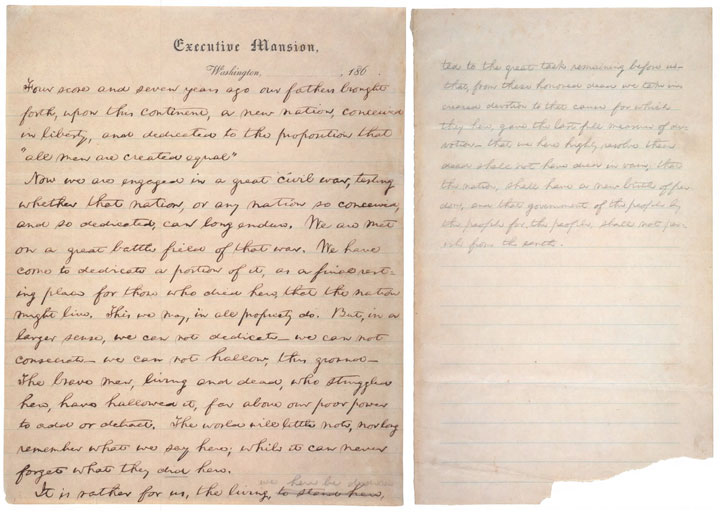 Executive Mansion,
Washington, , 186 .
Four score and seven years ago our fathers brought
forth, upon this continent, a new nation, conceived
in liberty, and dedicated to the proposition that
"all men are created equal"
Now we are engaged in a great civil war, testing
whether that nation, or any nation so conceived,
and so dedicated, can long endure. We are met
on a great battle field of that war. We have
come to dedicate a portion of it, as a final rest-
ing place for those who died here, that the nation
might live. This we may, in all propriety do. But, in a
larger sense, we can not dedicate— we can not
consecrate— we can not hallow, this ground—
The brave men, living and dead, who struggled
here, have hallowed it, far above our poor power
to add or detract. The world will little note, nor long
remember what we say here; while it can never
forget what they did here.
we here be dedica
It is rather for us, the living, to stand here,
ted to the great task remaining before us—
that, from these honored dead we take in-
creased devotion to that cause for which
they here, gave the last full measure of de-
votion— that we here highly resolve these
dead shall not have died in vain; that
the nation, shall have a new birth of free-
dom, and that government of the people by
the people for the people, shall not per-
ish from the earth.